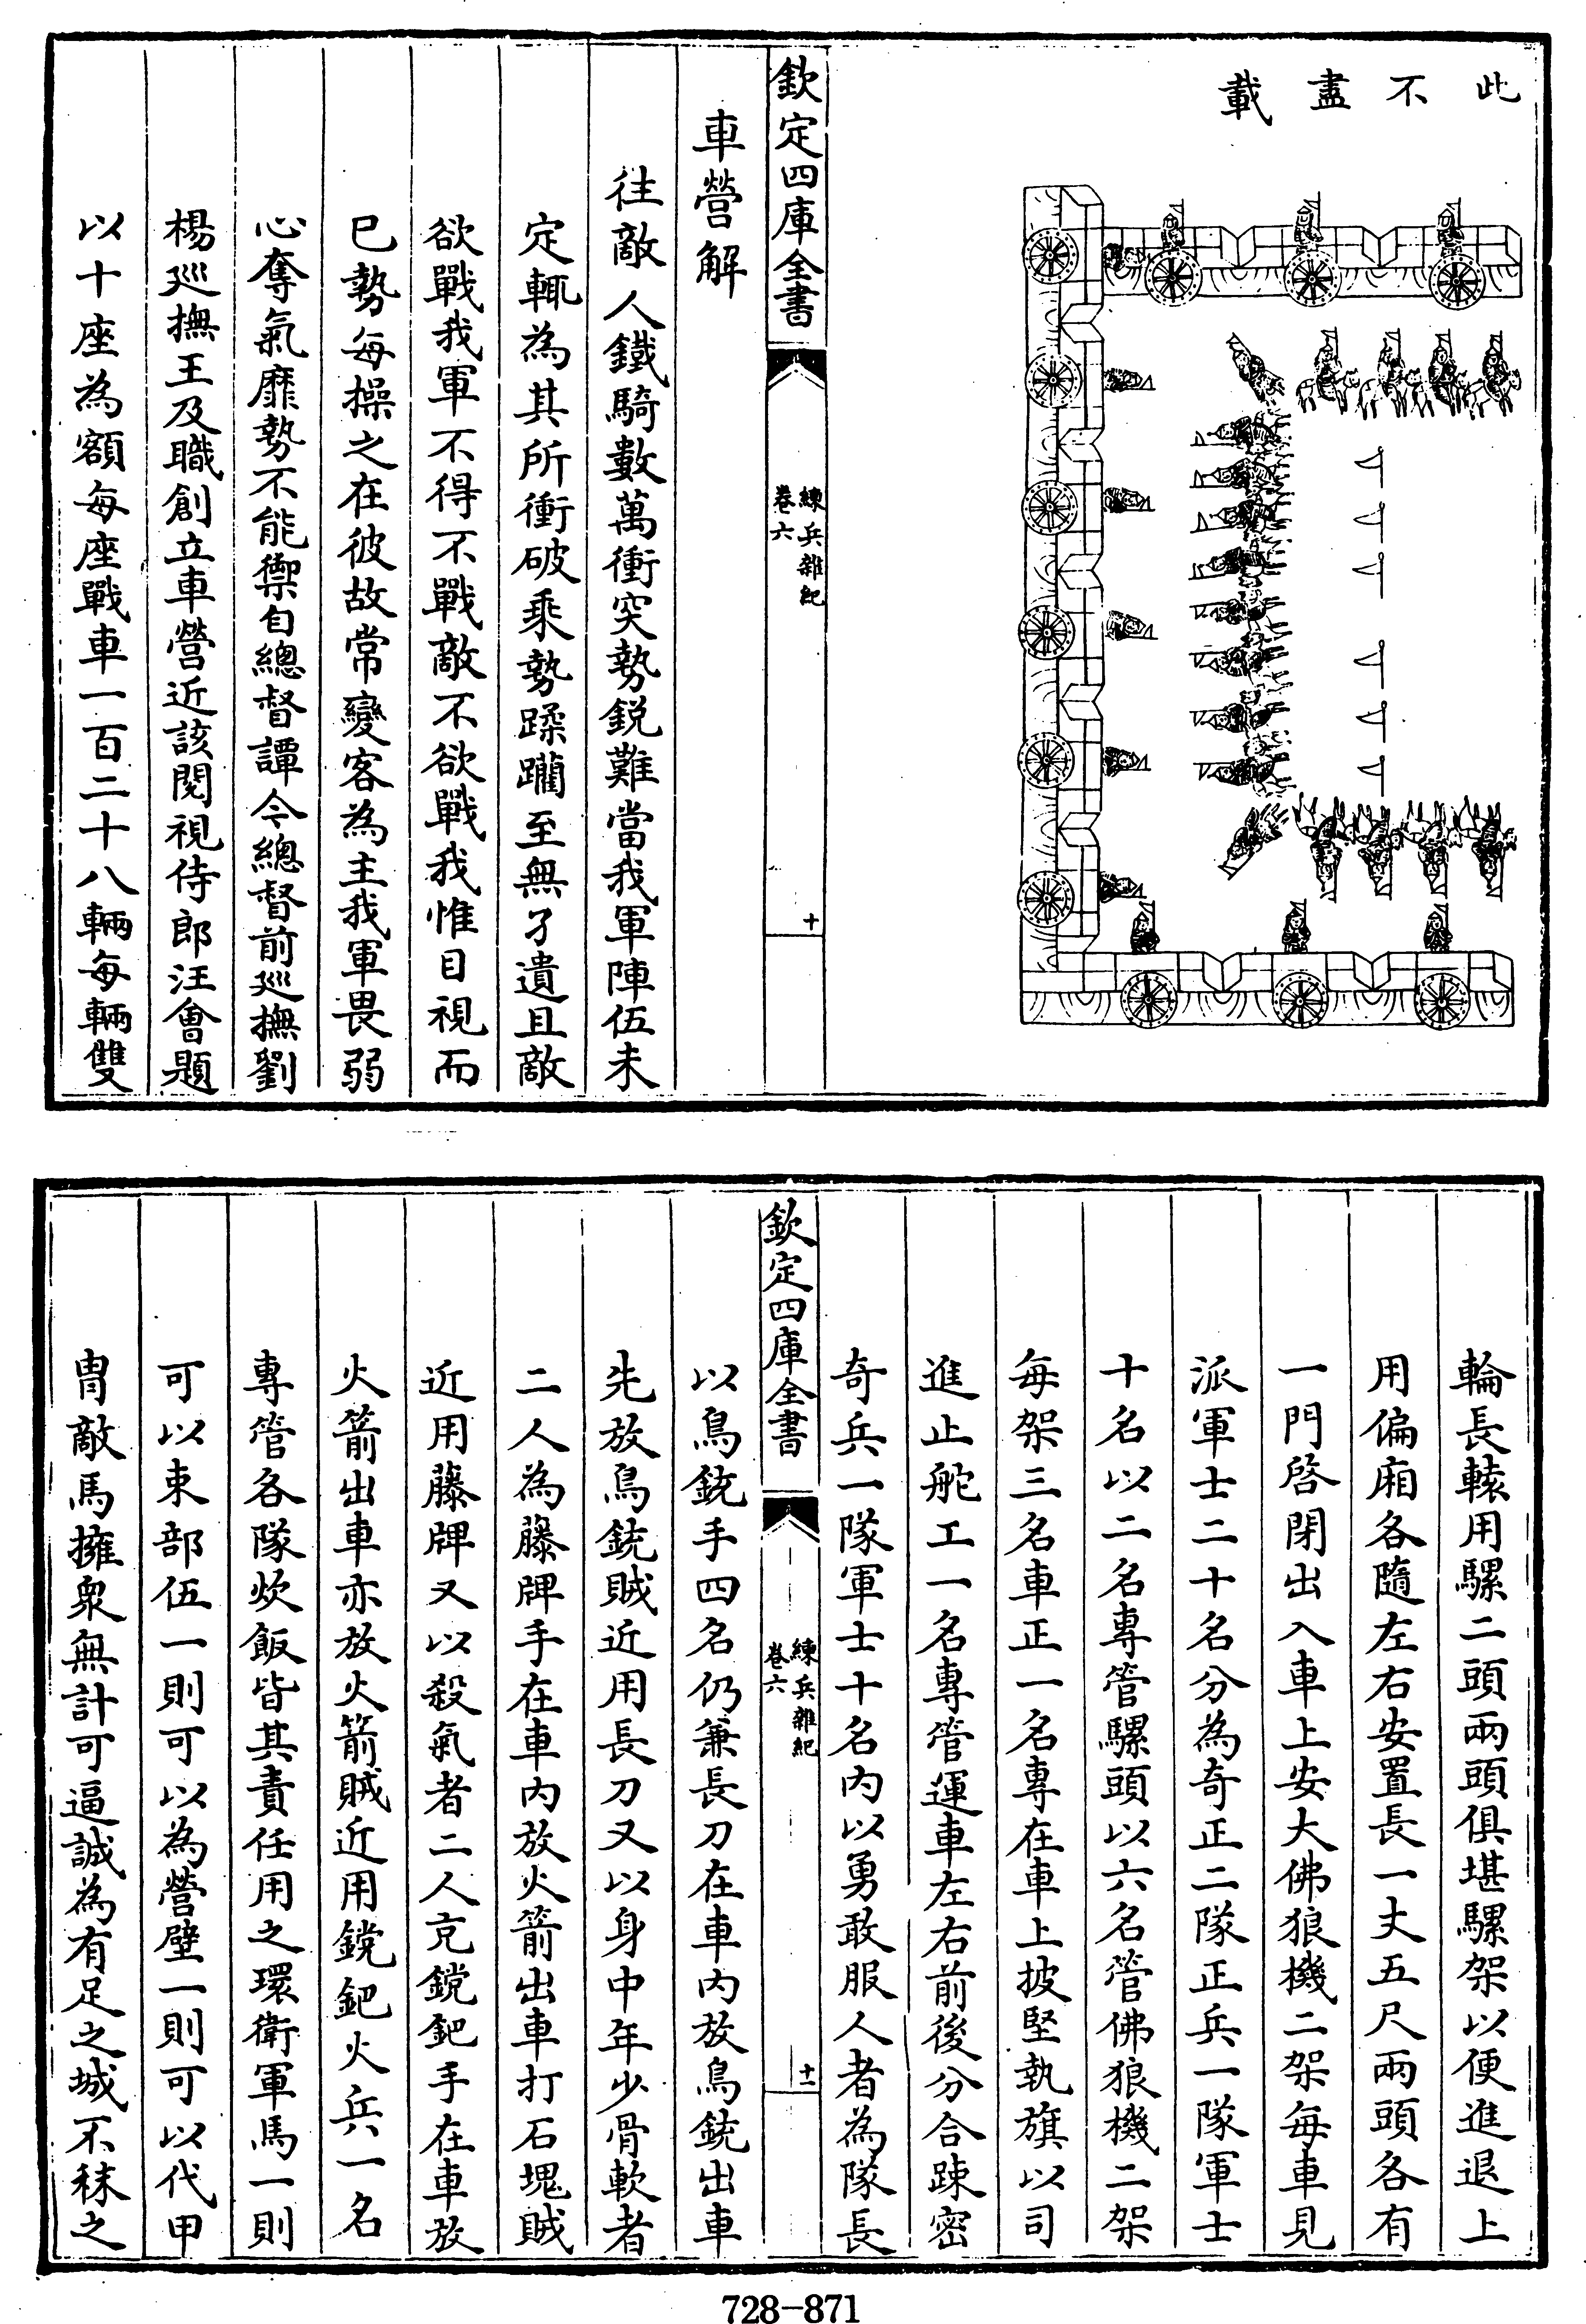 此不盡載
欽定四庫全書
練兵雜紀
卷六
十
車營解
往敵人鐵騎數萬衝突勢鋭難當我軍陣伍未
定輒為其所衝破乘勢蹂躪至無孑遺且敵
欲戰我軍不得不戰敵不欲戰我惟目視而
已勢每操之在彼故常變客為主我軍畏弱
心奪氣靡勢不能禦自總督譚今總督前廵撫劉
楊廵撫王及職創立車營近該閱視侍郎汪會題
以十座為額每座戰車一百二十八輛每輛雙
輪長轅用騾二頭兩頭俱堪騾架以便進退上
用偏廂各隨左右安置長一丈五尺兩頭各有
一門啓閉出入車上安大佛狼機二架每車見
派軍士二十名分為奇正二隊正兵一隊軍士
十名以二名專管騾頭以六名管佛狼機二架
每架三名車正一名專在車上披堅執旗以司
進止舵工一名專管運車左右前後分合踈密
奇兵一隊軍士十名内以勇敢服人者為隊長
欽定四庫全書
練兵雜紀
卷六
十一
以鳥銃手四名仍兼長刀在車内放鳥銃出車
先放鳥銃賊近用長刀又以身中年少骨軟者
二人為藤牌手在車内放火箭出車打石塊賊
近用藤牌又以殺氣者二人充钂鈀手在車放
火箭出車亦放火箭賊近用钂鈀火兵一名
專管各隊炊飯皆其責任用之環衛軍馬一則
可以束部伍一則可以為營壁一則可以代甲
胄敵馬擁衆無計可逼誠為有足之城不秣之
728-871